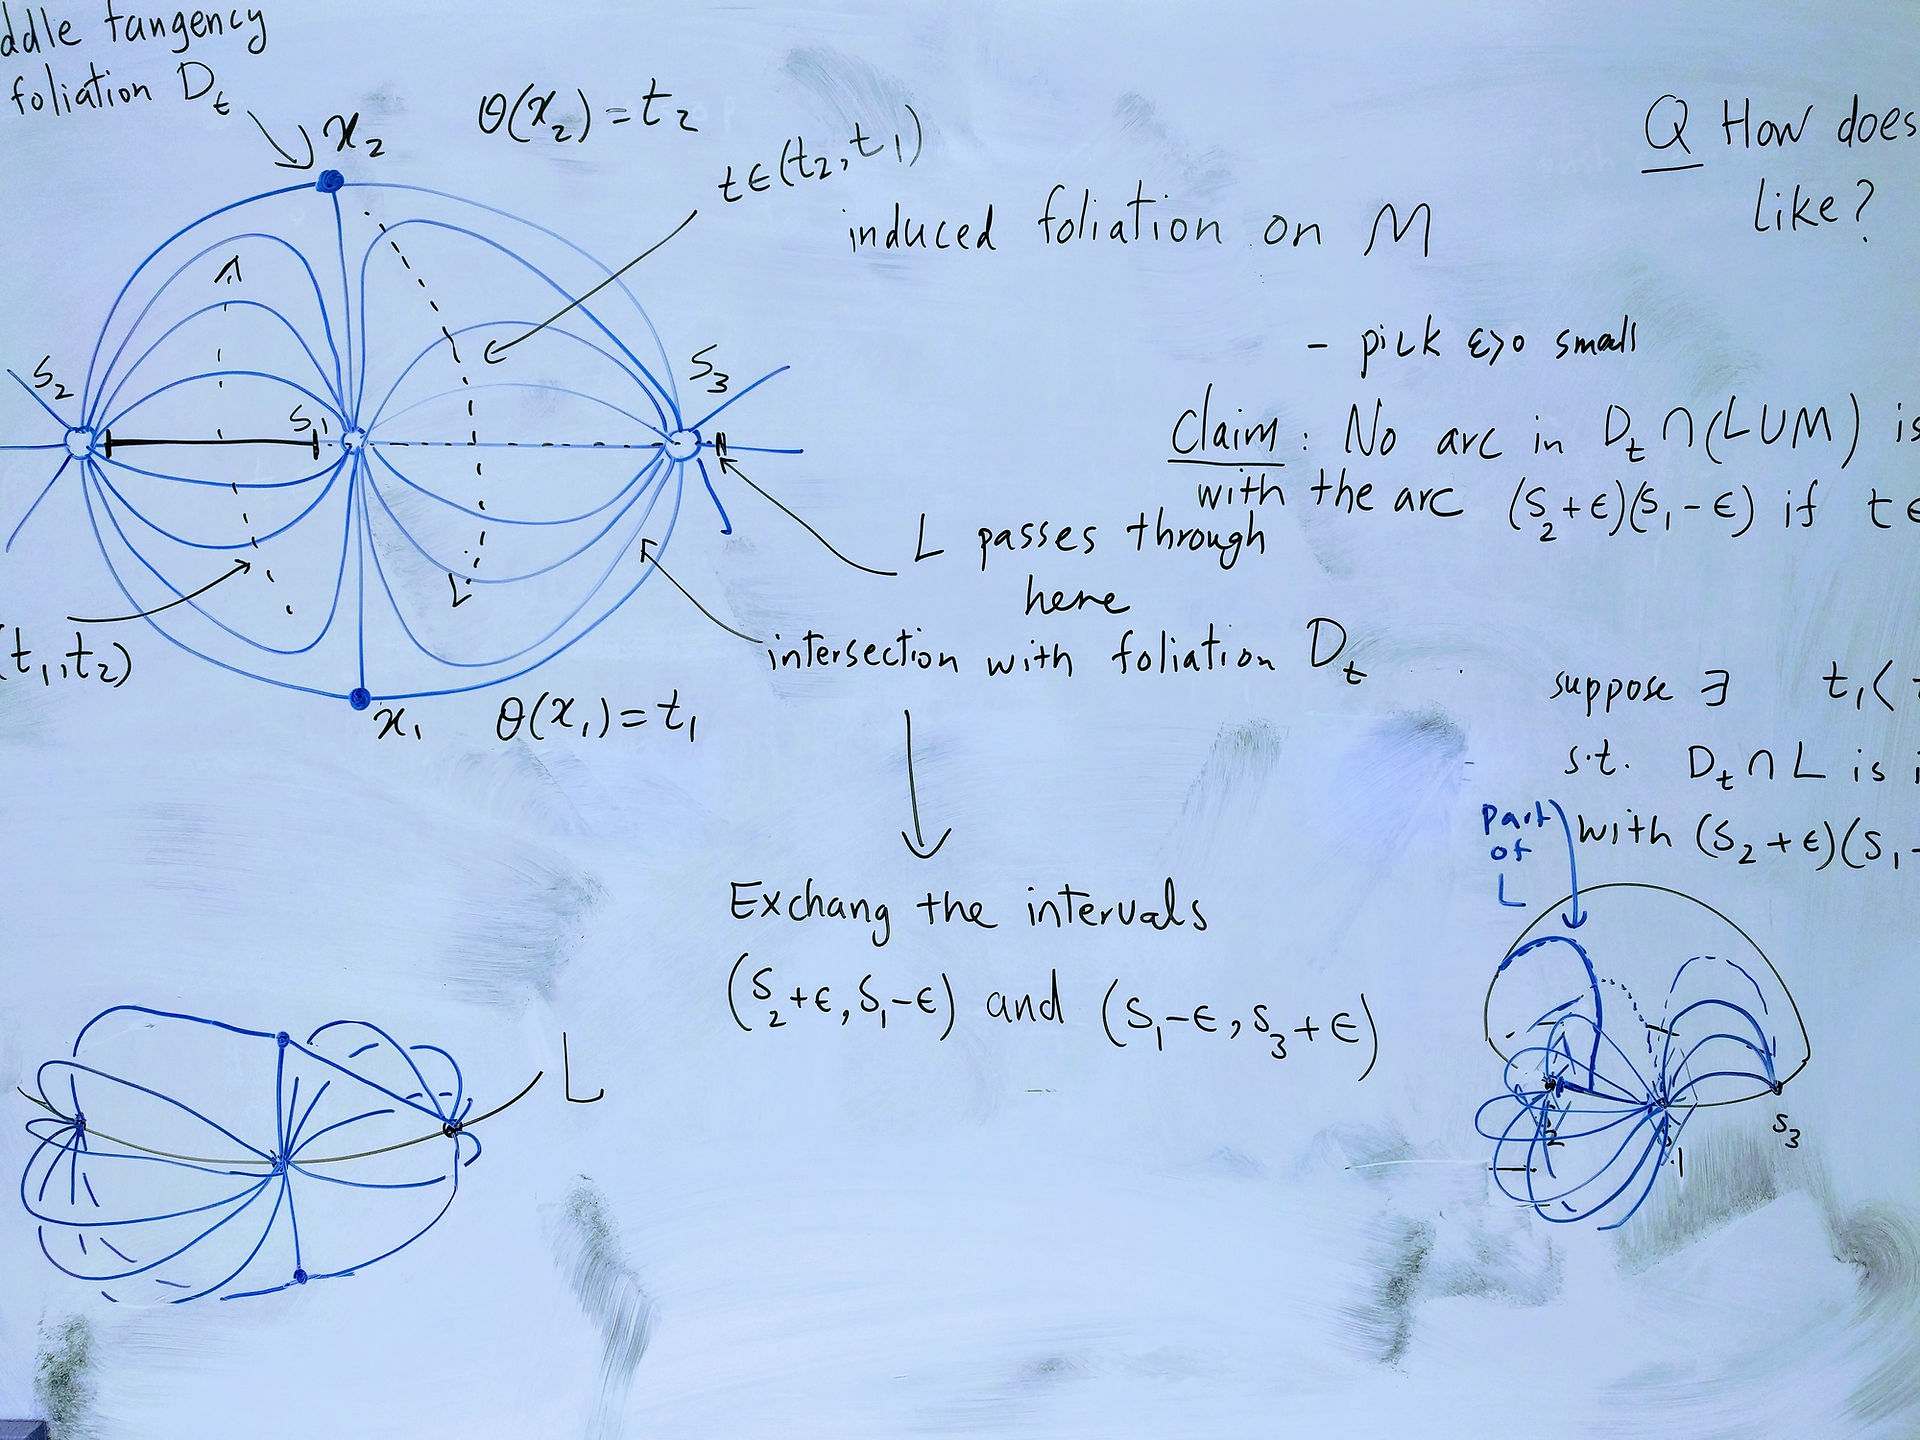 ddle tangency
foliation D_t
x_2
θ(x_2) = t_2
t∈(t_2, t_1)
induced foliation on M
Q How does
like?
- pick ε>0 small
Claim : No arc in D_t ∩ (L∪M) is
with the arc (S_2+ϵ)(S_1-ϵ) if t ∈
S_2
S_1
S_3
L passes through
here
intersection with foliation D_t
(t_1, t_2)
x_1
θ(x_1) = t_1
suppose ∃ t_1 <
s.t. D_t ∩ L is i
with (S_2+ϵ)(S_1-
part
of
L
Exchang the intervals
(S_2+ϵ, S_1-ϵ) and (S_1-ϵ, S_3+ϵ)
L
S_3